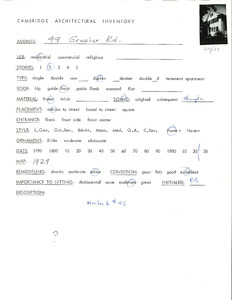 CAMBRIDGE ARCHITECTURAL INVENTORY
ADDRESS: 49 Grozier Rd.
USE: residential commercial religious
STORIES: 1 2 3 4 5
TYPE: single double row duplex decker double d tenement apartment
ROOF: hip gable front gable flank mansard flat
MATERIAL: frame brick SIDING: original subsequent
PLACEMENT: access to street bound to street square
ENTRANCE: flank front side front center
STYLE: Gr.Rev. Ital. Mans. Med. Q.A. C.Rev. None
ORNAMENT: little moderate elaborate
DATE: 1790 1800 10 20 30 40 50 60 70 80 90 1900 10 20 30
MAP: 1929
REMODELING: drastic moderate CONDITION: poor fair good excellent
IMPORTANCE TO SETTING: detrimental none moderate great INITIALED:
DESCRIPTION:
#45
?